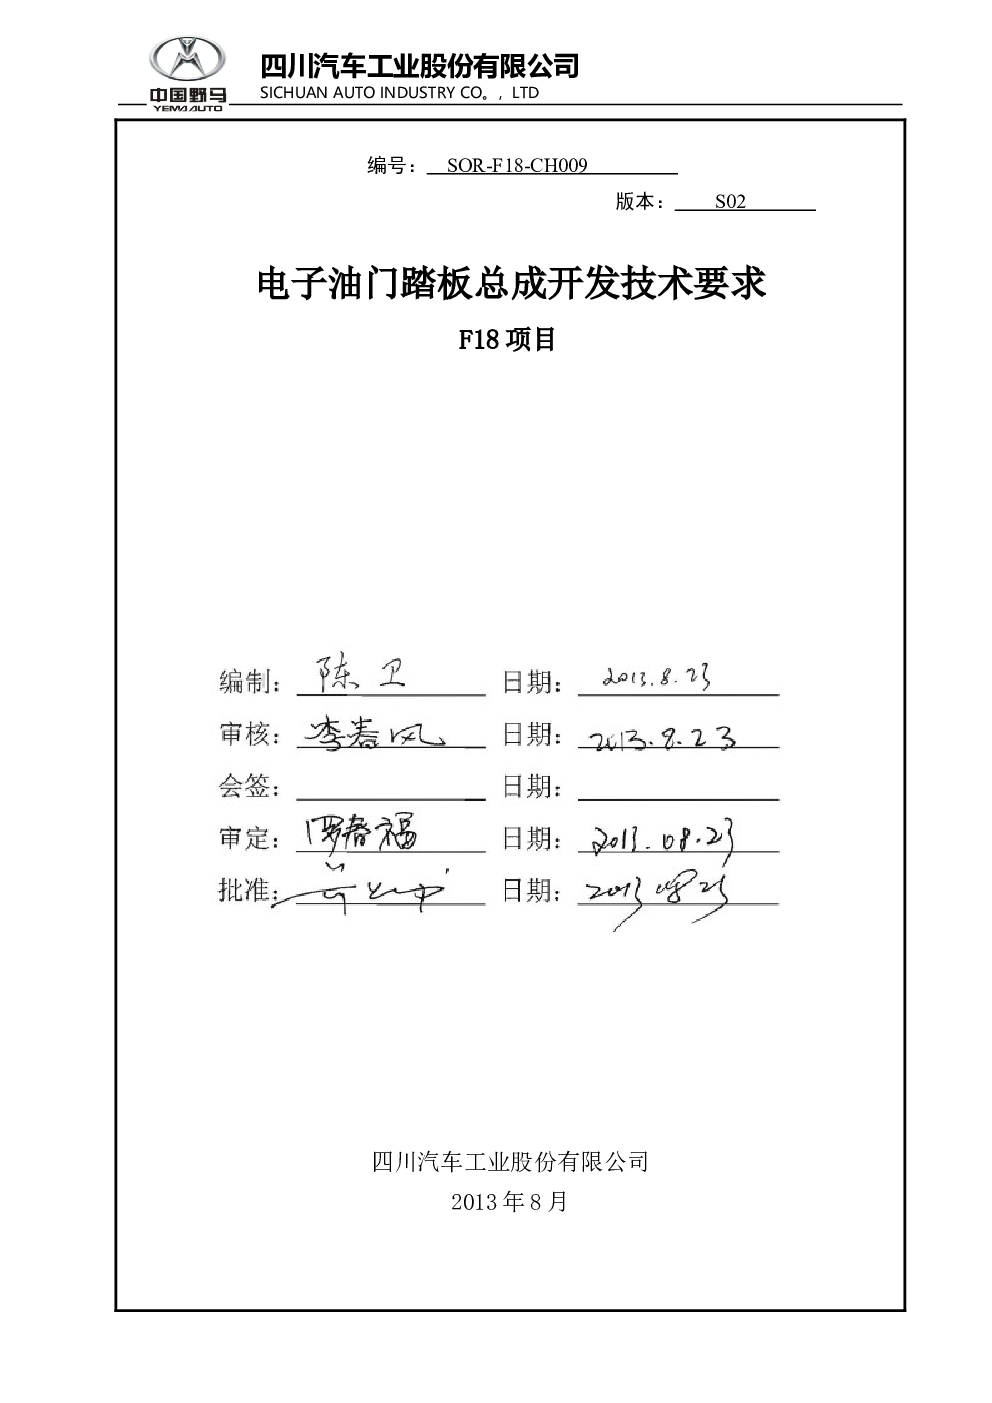 中国野马
YEMA AUTO
四川汽车工业股份有限公司
SICHUAN AUTO INDUSTRY CO。, LTD
编号： SOR-F18-CH009
版本： S02
电子油门踏板总成开发技术要求
F18 项目
编制： 陈卫 日期： 2013.8.23
审核： 李春风 日期： 2013.8.23
会签： 日期：
审定： 罗春福 日期： 2013.08.23
批准： 日期： 2013 08 23
四川汽车工业股份有限公司
2013 年 8 月